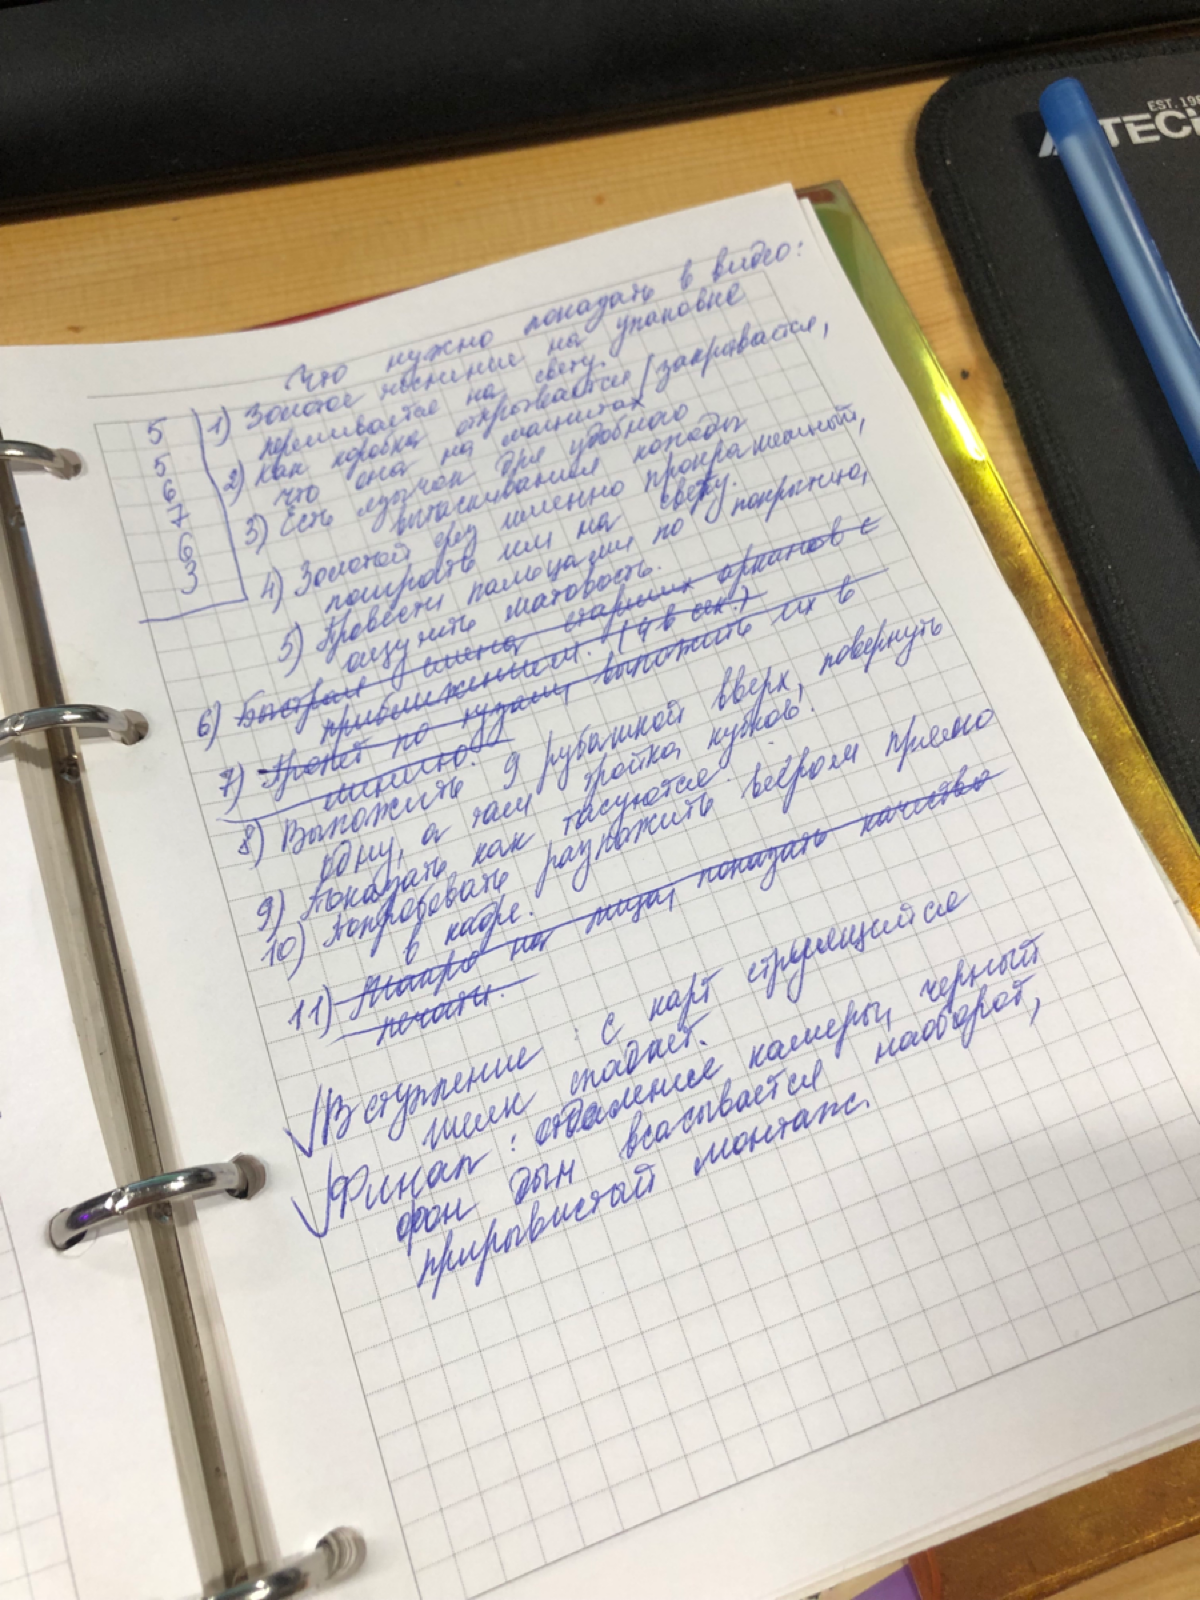 EST. 198
TECH
Что нужно показать в видео:
5
5
6
7
6
3
1) Золотое тиснение на упаковке
переливается на свету.
2) Как коробка открывается/закрывается,
что она на магнитах
3) Есть язычок для удобного
вытаскивания колоды
4) Золотой срез именно прокрашенный,
поиграть им на свету.
5) Провести пальцами по покрытию,
ощутить матовость.
6) Быстрая смена старших арканов с
приближением. (4 в сек.)
7) Пролёт по тузам, выложить их в
линию.
8) Выложить 9 рубашкой вверх, повернуть
одну, а там тройка кубков.
9) Показать как тасуются.
10) Попробовать разложить веером прямо
в кадре.
11) Макро на лица, показать качество
печати.
Вступление: с карт струящийся
шелк спадает.
Финал: отдаление камеры, черный
фон дым всасывается наоборот,
прирывистый монтаж.